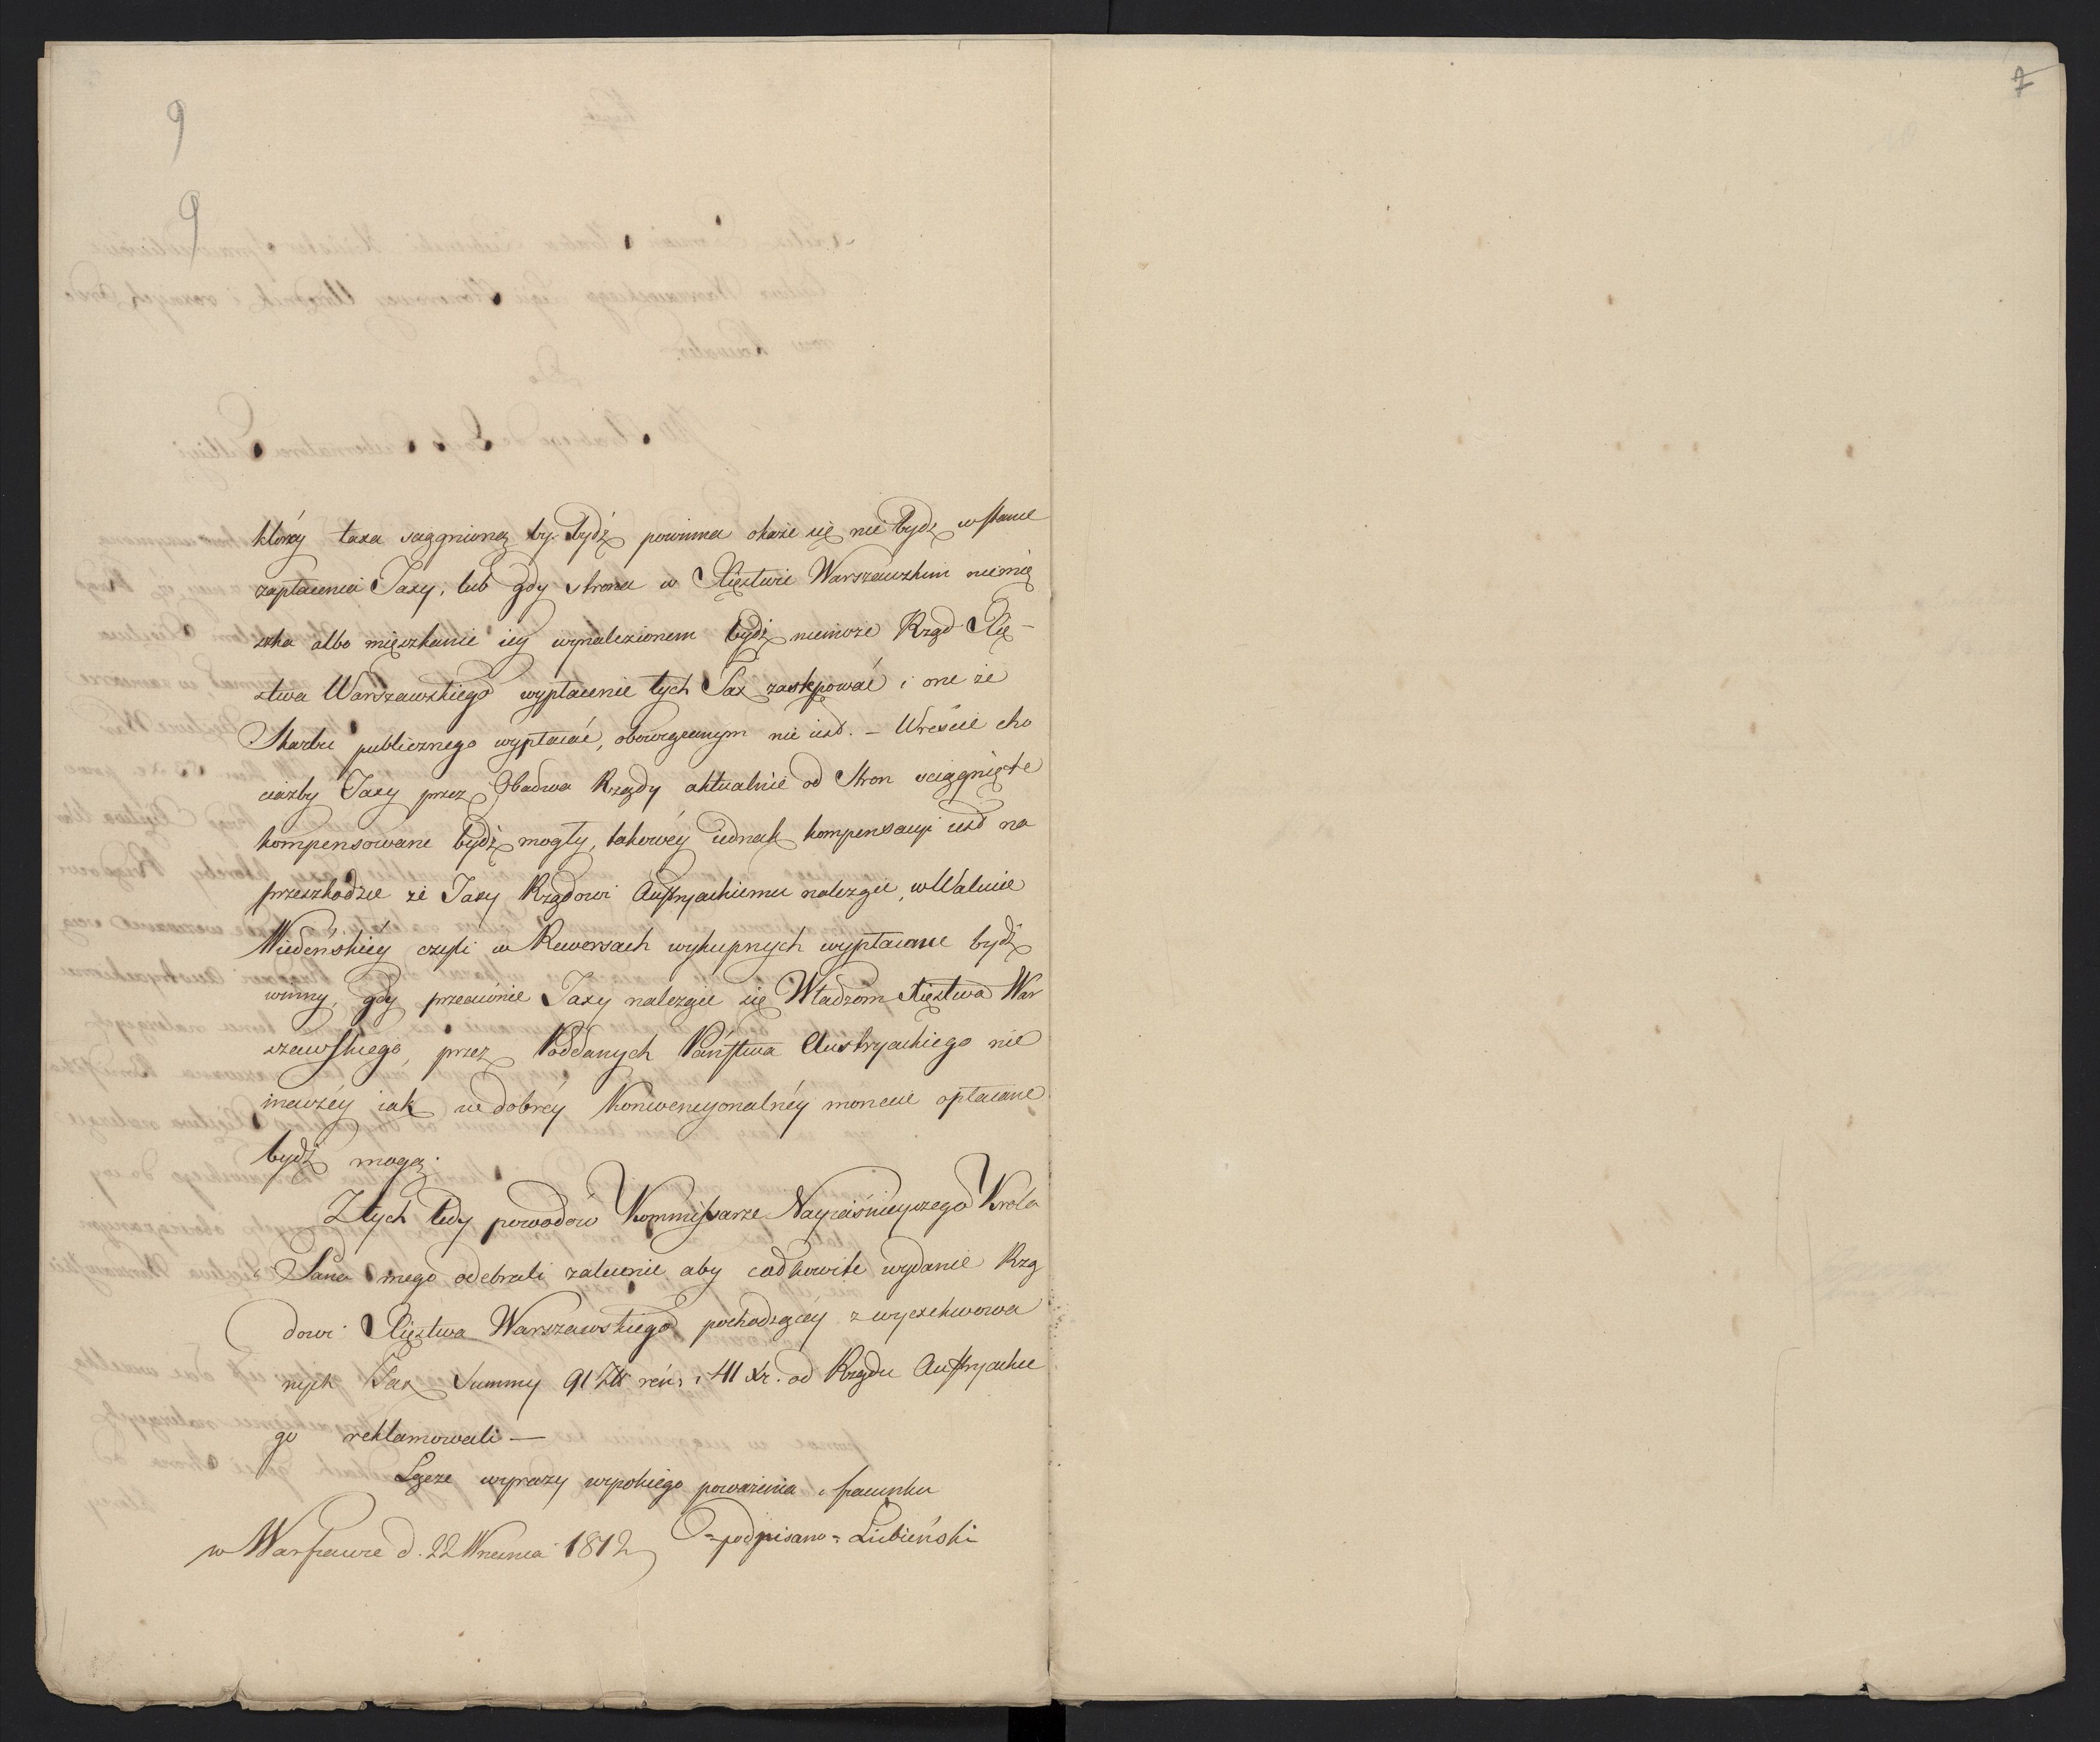 9
7
9
któréy taxa sciągnioną by bydź powinna okaże się nie bydz w stanie
zapłacenia Taxy, lub gdy strona w Xięstwie Warszawskim niemię
szka albo mięszkanie iéy wynalezionem bydź niemoże Rząd Xię-
stwa Warszawskiego wypłacenie tych Tax zastępować i one ze
Skarbu publicznego wypłacać, obowiązanym nie iest. – Wreście cho
ciażby Taxy przez Obadwa Rządy aktualnie od Stron sciągnięte
kompensowane bydź mogły, takowéy iednak kompensacyi iest na
przeszkodzie że Taxy Rządowi Austryackiemu należące, w Walucie
Wiedeńskiéy czyli w Rewersach wykupnych wypłacane bydź
winny, gdy przeciwnie Taxy należące się Władzom Xięstwa War
szawskiego, przez Poddanych Państwa Austryackiego nie
inaczéy iak w dobréy Konwencyonalnéy monecie opłacane
bydź mogą.
Z tych tedy powodów Kommissarze Nayiaśnieyszego Króla
Pana mego odebrali zalecenie aby całkowite wydanie Rzą
dowi Xięstwa Warszawskiego pochodzącéy z wyexekwowa
nych Tax Summy 91 ZŁł reń: i 41 Xr. od Rządu Austryackie
go reklamowali —
Łączę wyrazy wysokiego poważenia i szacunku
=podpisano= Łubieński
w Warszawie d. 22 Wrzesnia 1812